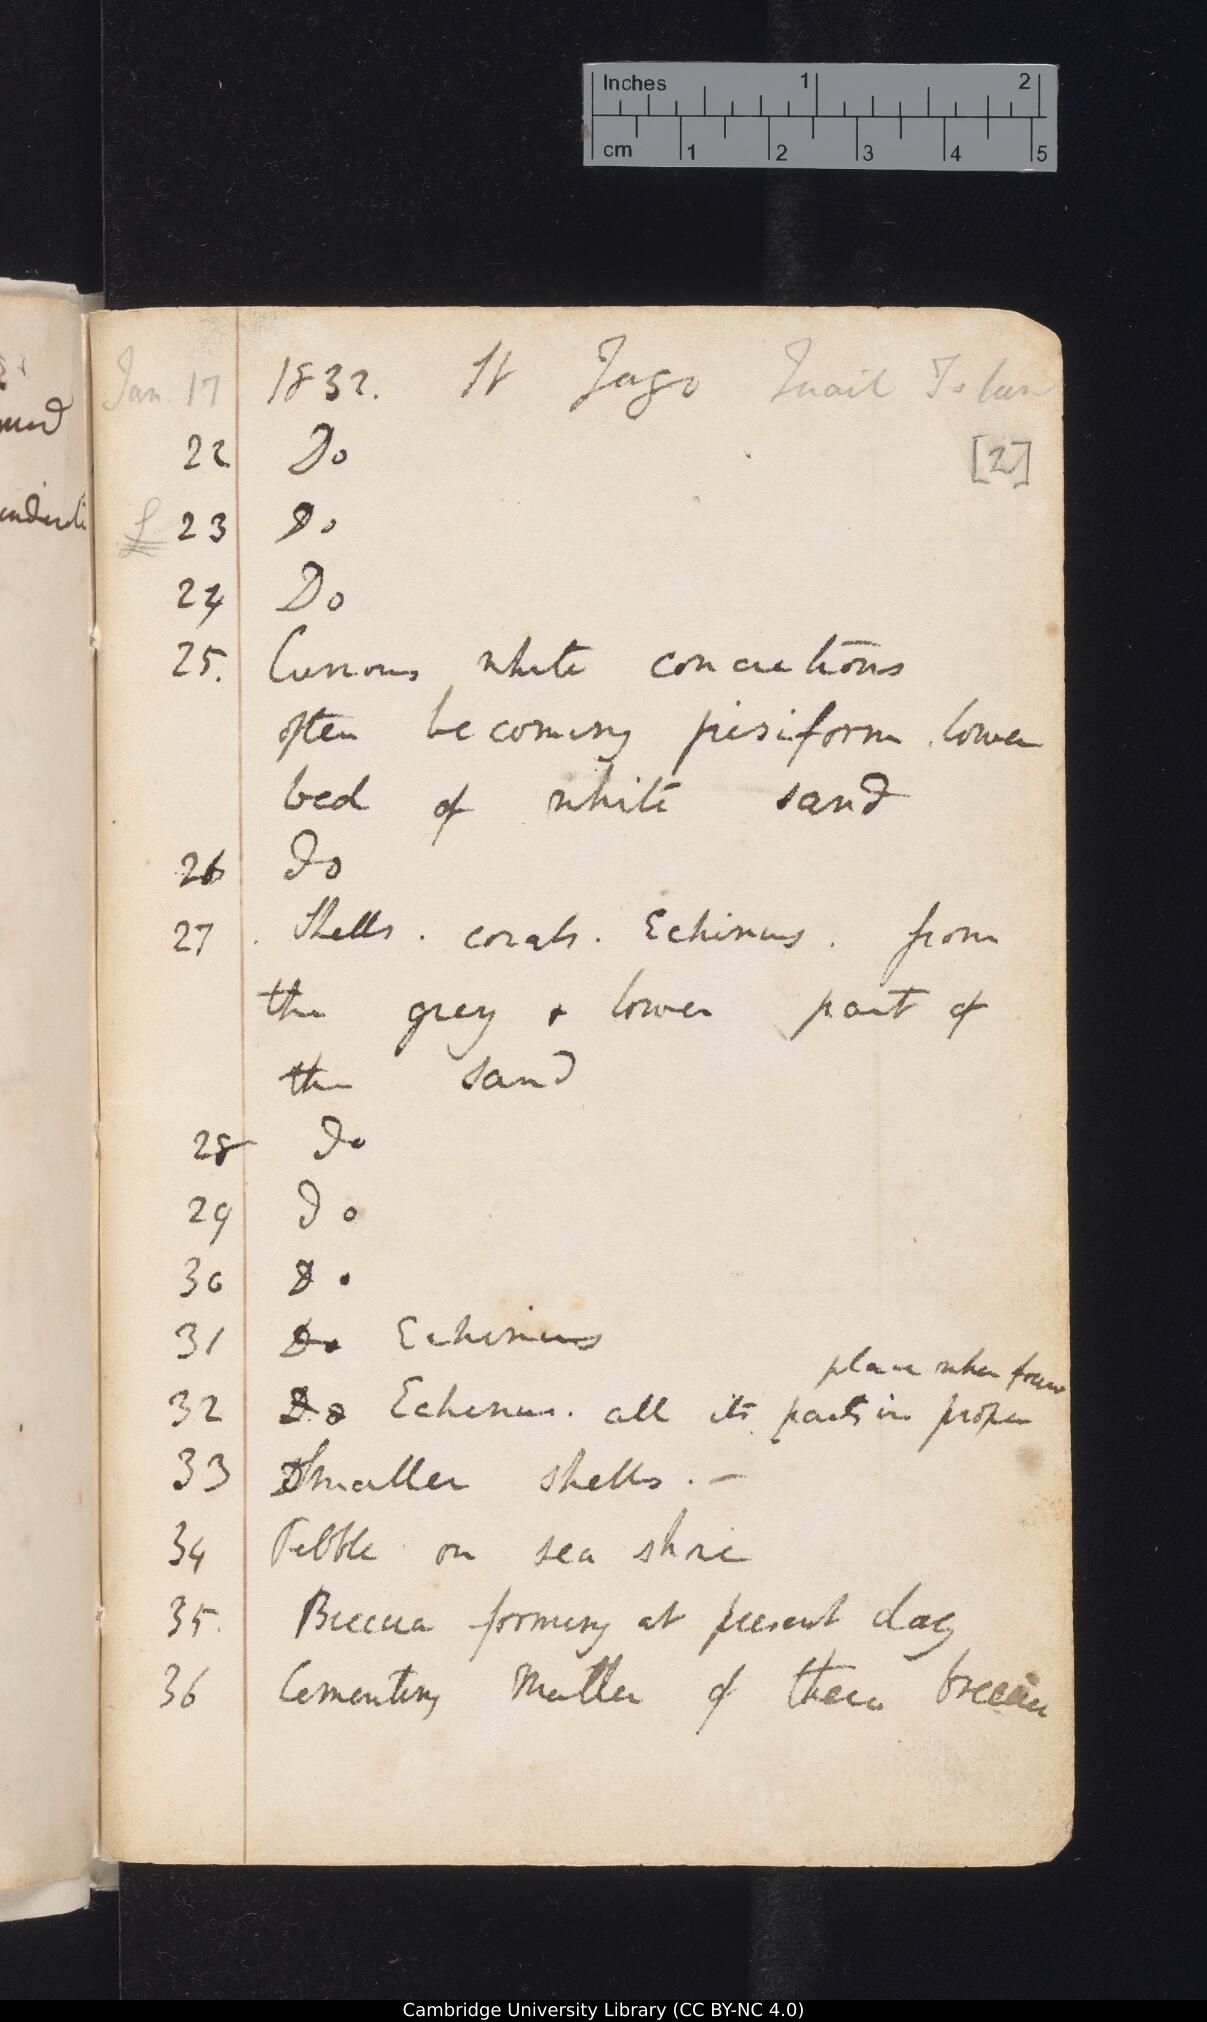 Inches 1 2
cm 1 2 3 4 5
Jan. 17 1832. St Jago Quail Islan
22 Do
[2]
23 Do
24 Do
25. Curious white concretions
often becoming pisiform lower
bed of white sand
26 Do
27 . Shells . corals . Echinus . from
the grey & lower part of
the sand
28 Do
29 Do
30 Do
31 Do Echinus
place when foun
32 Do Echinus . all its parts in proper
33 Smaller shells . —
34 Pebble on sea shore
35. Breccia forming at present day
36 Cementing matter of these breccia
Cambridge University Library (CC BY-NC 4.0)